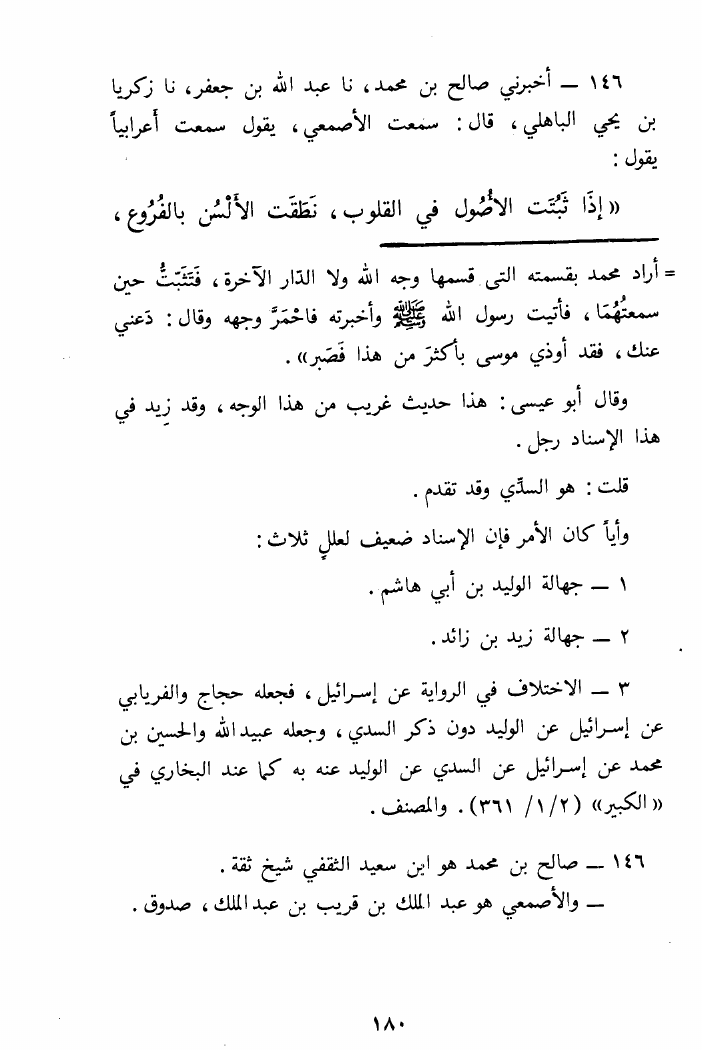 ١٤٦ ــ أخبرني صالح بن محمد، نا عبد الله بن جعفر، نا زكريا
بن يحي الباهلي، قال: سمعت الأصمعي، يقول سمعت أعرابياً
يقول:
«إذَا ثَبُتَت الأصُول في القلوب، نَطَقَت الألْسُن بالفُرُوع،
= أراد محمد بقسمته التي قسمها وجه الله ولا الدّار الآخرة، فَتَثَبّتُّ حين
سمعتُهُمَا، فأتيت رسول الله ﷺ وأخبرته فاحْمَرَّ وجهه وقال: دَعني
عنك، فقد أوذي موسى بأكثرَ من هذا فَصَبر».
وقال أبو عيسى: هذا حديث غريب من هذا الوجه، وقد زِيد في
هذا الإسناد رجل.
قلت: هو السدّي وقد تقدم.
وأياً كان الأمر فإن الإسناد ضعيف لعللٍ ثلاث:
١ ــ جهالة الوليد بن أبي هاشم.
٢ ــ جهالة زيد بن زائد.
٣ ــ الاختلاف في الرواية عن إسرائيل، فجعله حجاج والفريابي
عن إسرائيل عن الوليد دون ذكر السدي، وجعله عبيدالله والحسين بن
محمد عن إسرائيل عن السدي عن الوليد عنه به كما عند البخاري في
«الكبير» (٢/ ١/ ٣٦١). والمصنف.
١٤٦ ــ صالح بن محمد هو ابن سعيد الثقفي شيخ ثقة.
ــ والأصمعي هو عبد الملك بن قريب بن عبدالملك، صدوق.
١٨٠